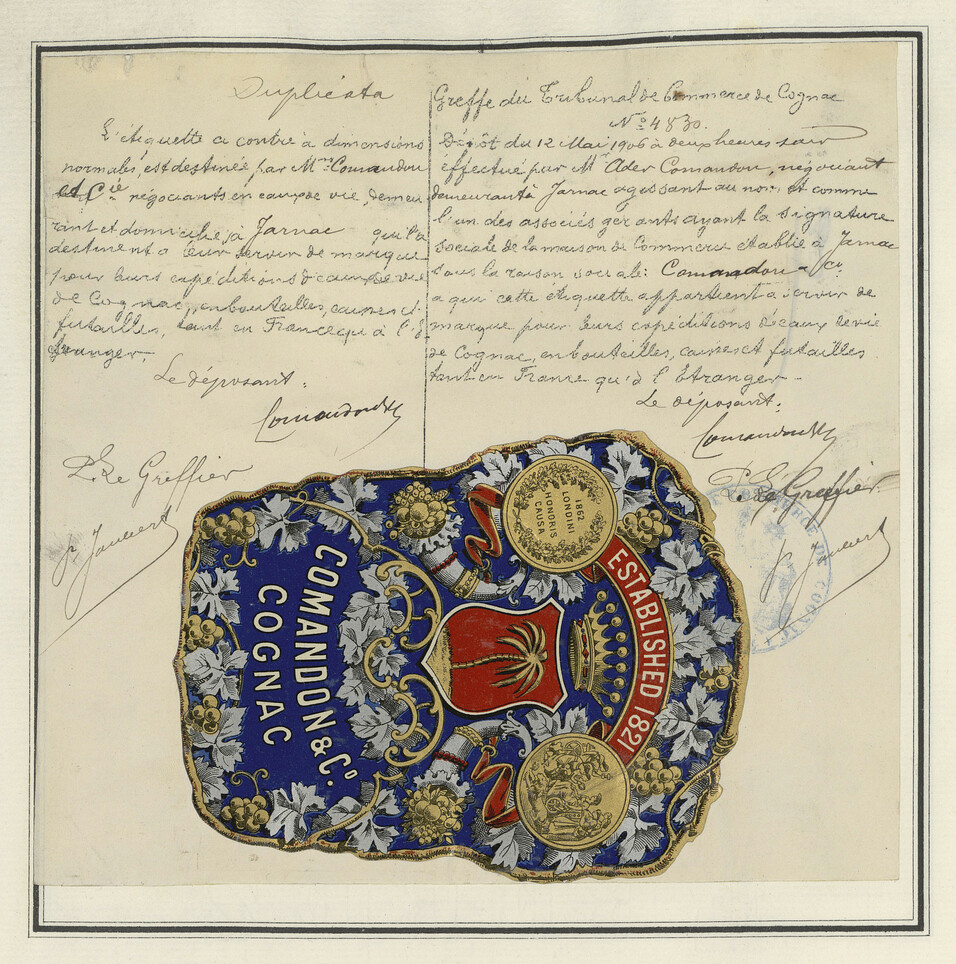 Duplicata
L'étiquette ci contre à dimensions
normales, est destinée par Mm Comandon
et Cie négociants en eaux de vie demeu
rant et domiciliés à Jarnac qui la
destinent à leur servir de marque
pour leurs expéditions d'eaux de vie
de Cognac, en bouteilles, caisses et
futailles, tant en France qu'à l'É
tranger
Le déposant.
Comandon & Co
P. Le Greffier
Greffe du Tribunal de Commerce de Cognac
No 4830.
Dépôt du 12 Mai 1906 à deux heures soir
effectué par Mr Ader Comandon, négociant
demeurant à Jarnac agissant au nom et comme
l'un des associés gérants ayant la signature
sociale de la maison de Commerce établie à Jarnac
sous la raison sociale: Comandon & Co
à qui cette étiquette appartient à servir de
marque pour leurs expéditions d'eaux de vie
de Cognac, en bouteilles, caisses et futailles
tant en France qu'à l'Étranger
Le déposant.
Comandon & Co
P. Le Greffier
1862
LONDINI
HONORIS
CAUSA
ESTABLISHED 1821
COMANDON & Co.
COGNAC